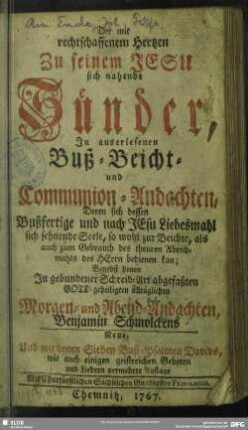 Der mit
rechtschaffenem Hertzen
Zu seinem JESU
sich nahende
Sünder,
In auserlesenen
Buß-Beicht-
und
Communion-Andachten,
Deren sich dessen
Bußfertige und nach JEsu Liebesmahl
sich sehnende Seele, so wohl zur Beichte, als
auch zum Gebrauch des theuren Abend-
mahls des HErrn bedienen kan;
Benebst denen
In gebundener Schreib-Art abgefaßten
GOTT-geheiligten alltäglichen
Morgen- und Abend-Andachten,
Benjamin Schmolckens
Neue,
Und mit denen Sieben Buß-Psalmen Davids,
wie auch einigen geistreichen Gebeten
und Liedern vermehrte Auflage
Chemnitz, 1767.